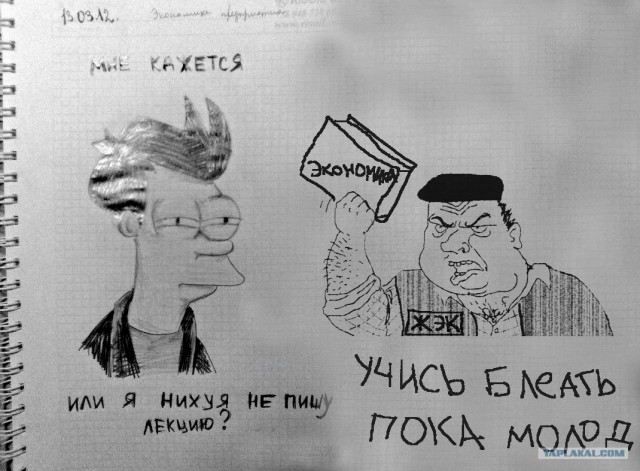 13.03.12. Экономика предприятия
МНЕ КАЖЕТСЯ
ИЛИ Я НИХУЯ НЕ ПИШУ
ЛЕКЦИЮ?
ЭКОНОМИКА
ЖЭК
УЧИСЬ БЛЕАТЬ
ПОКА МОЛОД
YAPLAKAL.COM